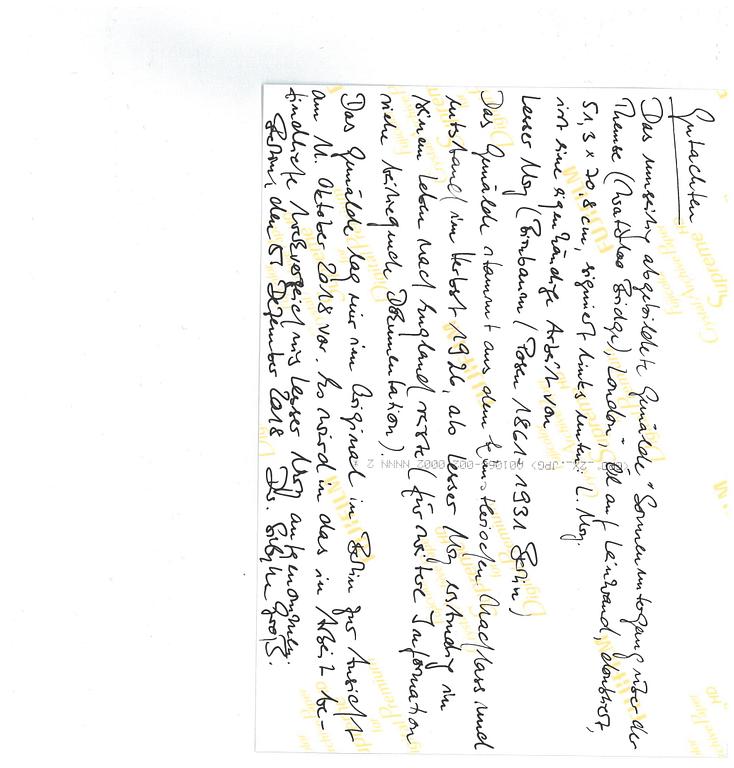 Gutachten
Das umseitig abgebildete Gemälde "Sonnenuntergang über der
Themse (Waterloo Bridge), London", Öl auf Leinwand, doubliert,
51,3 x 70,8 cm, signiert links unten: L. Ury.
ist eine eigenhändige Arbeit von
Lesser Ury (Birnbaum / Posen 1861 - 1931 Berlin)
Das Gemälde stammt aus dem künstlerischen Nachlass und
entstand im Herbst 1926, als Lesser Ury erstmalig in
seinem Leben nach England reiste (für weitere Information
siehe beiliegende Dokumentation).
Das Gemälde lag mir im Original in Berlin zur Ansicht
am 11. Oktober 2018 vor. Es wird in das in Arbeit be-
findliche Werkverzeichnis Lesser Ury aufgenommen.
Berlin, den 5. Dezember 2018 Dr. Sibylle Groß.
FUJIFILM
Crystal Archive Paper
Supreme HD
Digital Premium